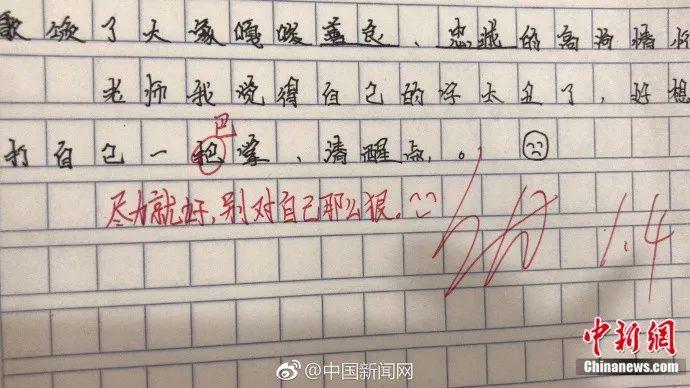 歌颂了大象嘎羧善良、忠诚的高尚情
老师我觉得自己的字太丑了，好想
巴
打自己一把掌，清醒点。
尽力就好，别对自己那么狠。
1.4
@中国新闻网
中新网
Chinanews.com